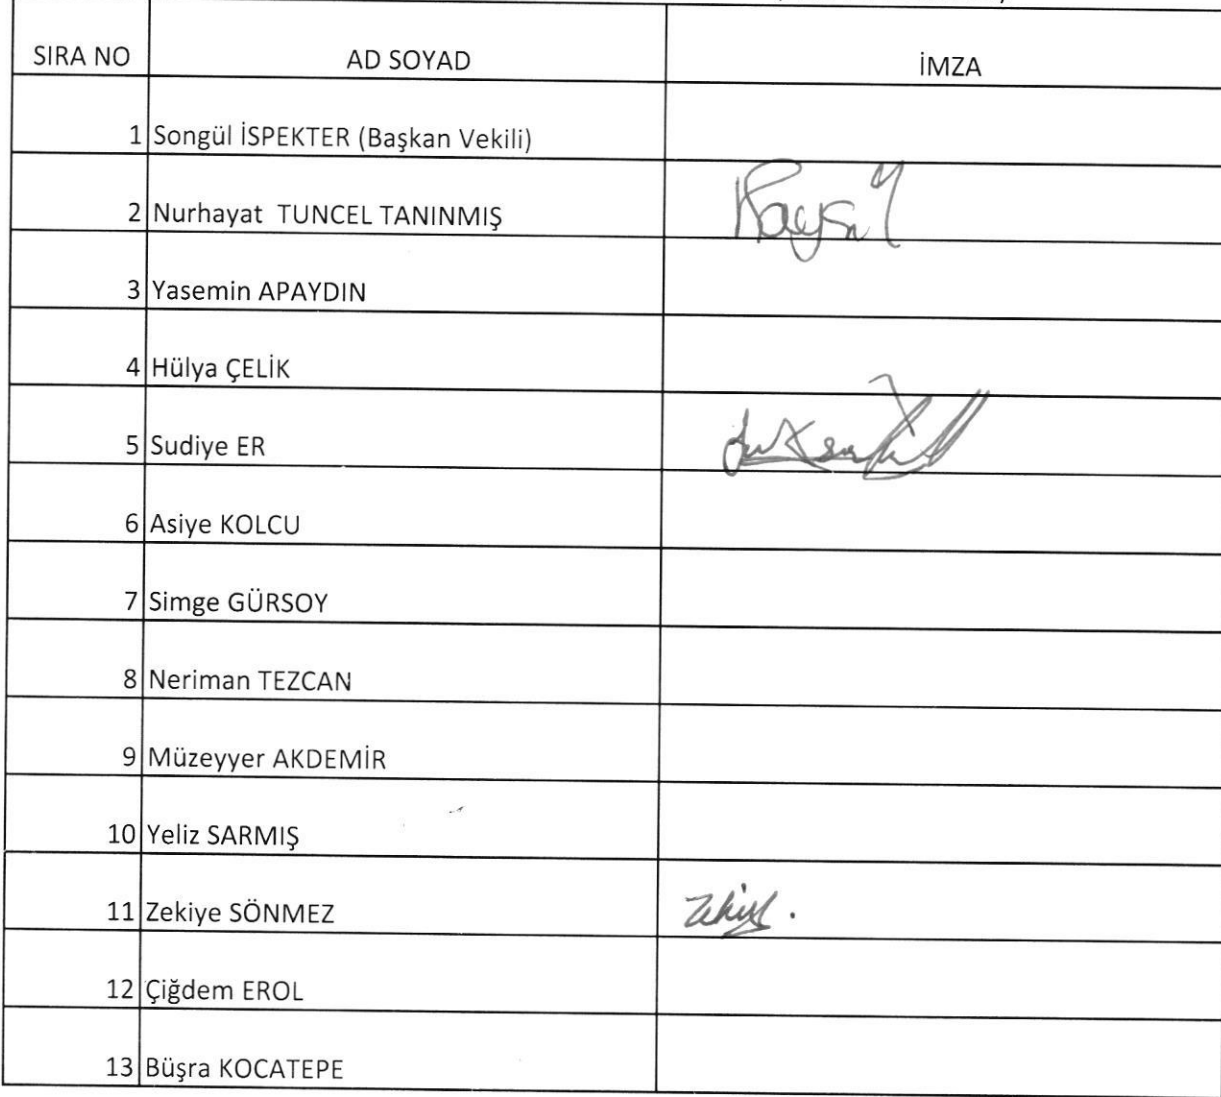 SIRA NO AD SOYAD İMZA
1 Songül İSPEKTER (Başkan Vekili)
2 Nurhayat TUNCEL TANINMIŞ
3 Yasemin APAYDIN
4 Hülya ÇELİK
5 Sudiye ER
6 Asiye KOLCU
7 Simge GÜRSOY
8 Neriman TEZCAN
9 Müzeyyer AKDEMİR
10 Yeliz SARMIŞ
11 Zekiye SÖNMEZ
12 Çiğdem EROL
13 Büşra KOCATEPE